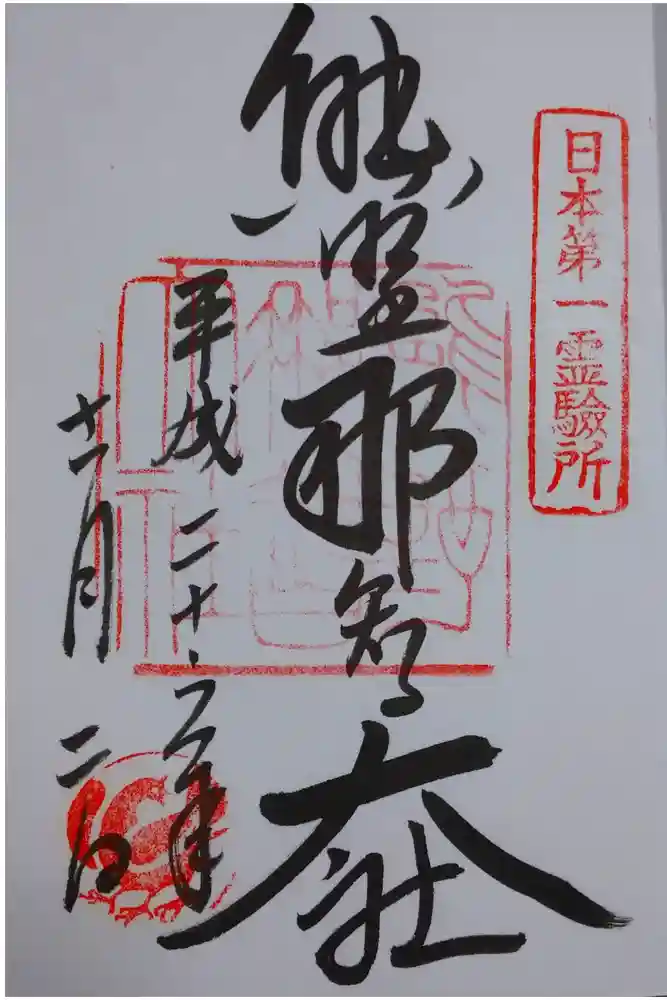 日本第一霊驗所
熊野那智大社
平成二十六年
十二月二日